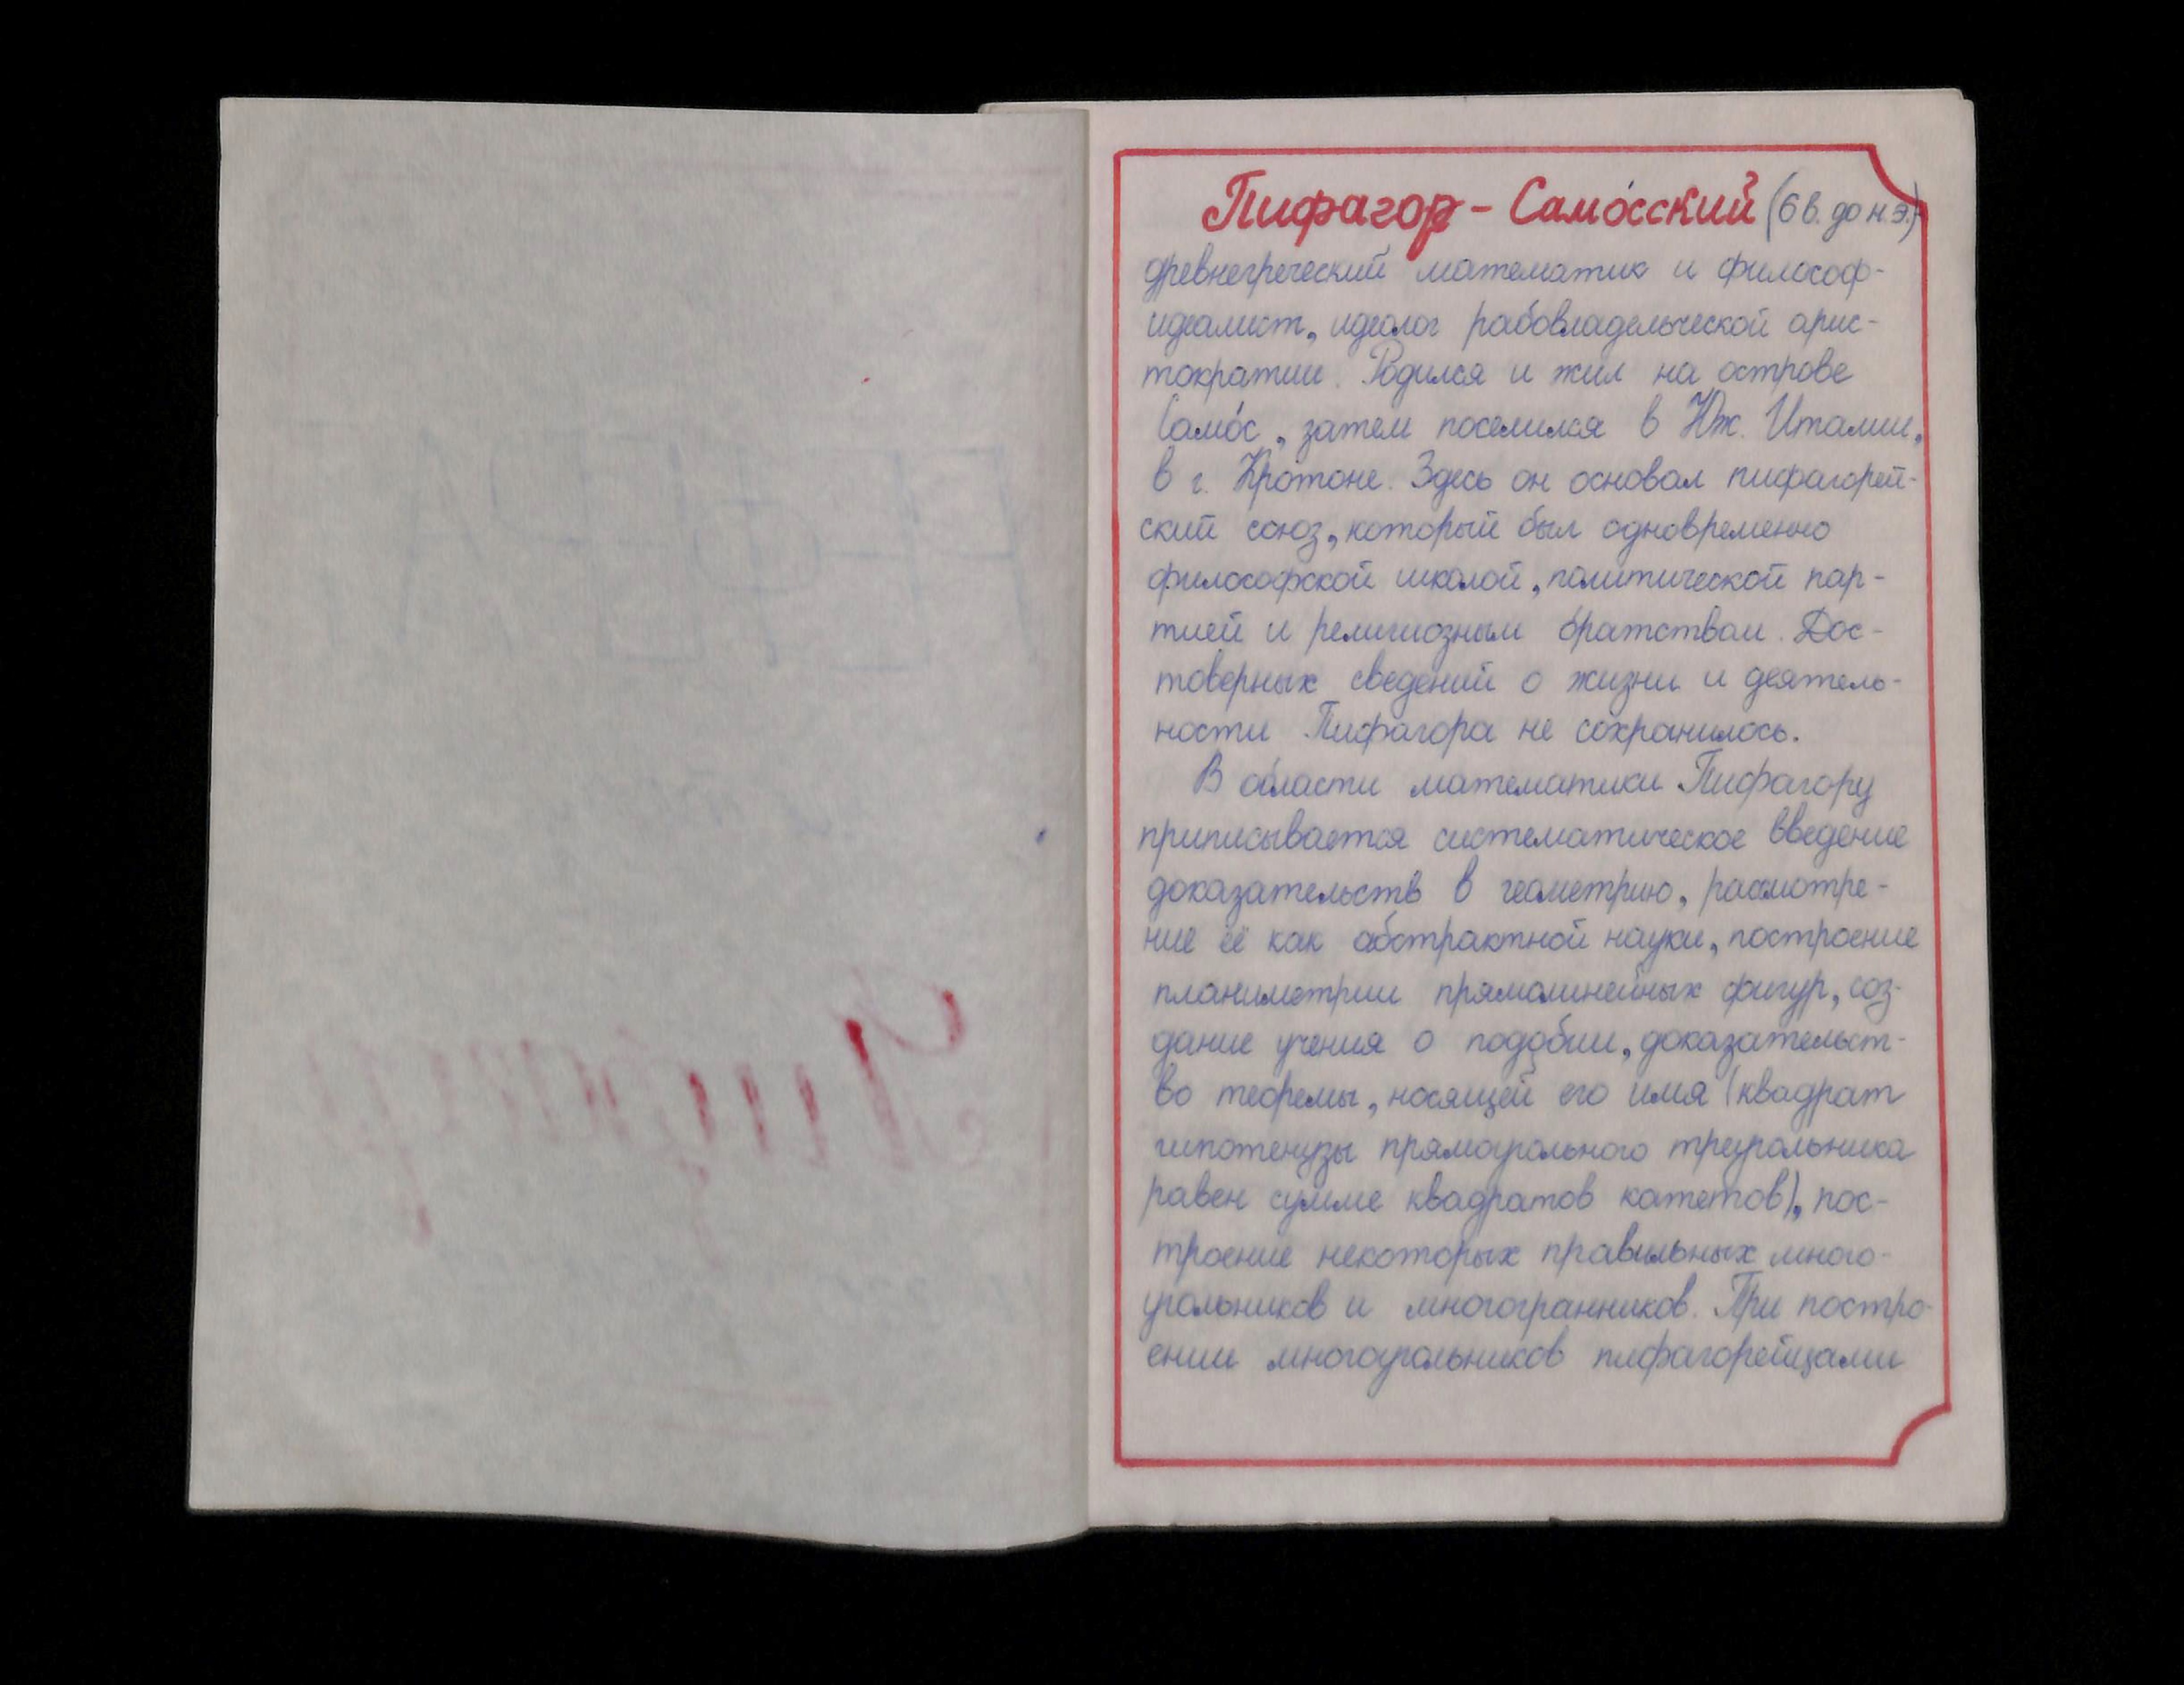 Пифагор - Само́сский (6 в. до н.э.)
древнегреческий математик и философ-
идеалист, идеолог рабовладельческой арис-
тократии. Родился и жил на острове
Само́с, затем поселился в Юж. Италии,
в г. Кротоне. Здесь он основал пифагорей-
ский союз, который был одновременно
философской школой, политической пар-
тией и религиозным братством. Дос-
товерных сведений о жизни и деятель-
ности Пифагора не сохранилось.
В области математики Пифагору
приписывается систематическое введение
доказательств в геометрию, рассмотре-
ние её как абстрактной науки, построение
планиметрии прямолинейных фигур, соз-
дание учения о подобии, доказательст-
во теоремы, носящей его имя (квадрат
гипотенузы прямоугольного треугольника
равен сумме квадратов катетов), пос-
троение некоторых правильных много-
угольников и многогранников. При постро-
ении многоугольников пифагорейцами